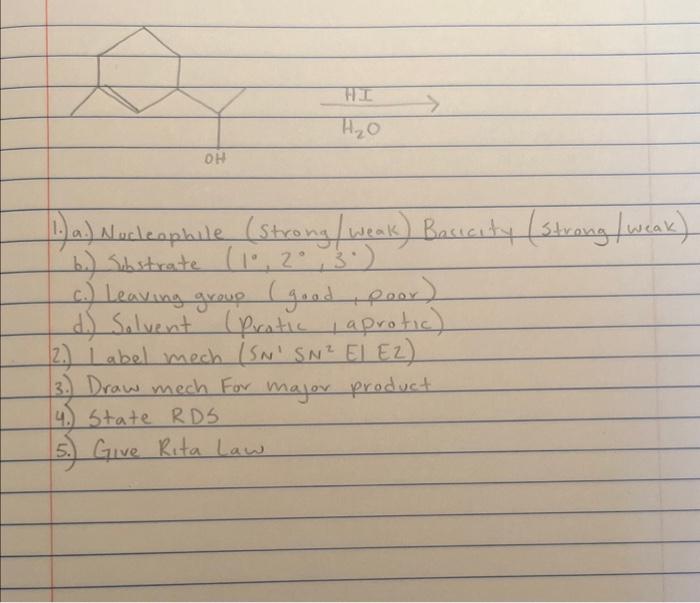 HI
H₂O
OH
1.) a.) Nucleophile (Strong/weak) Basicity (Strong/weak)
b.) Substrate (1°, 2°, 3°)
c.) Leaving group (good, poor)
d.) Solvent (Protic, aprotic)
2.) Label mech (SN¹ SN² E1 E2)
3.) Draw mech For major product
4.) State RDS
5.) Give Rita Law